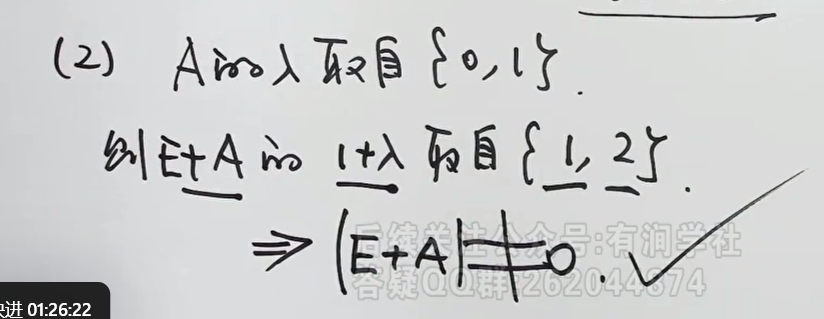 (2) A的λ取自{0,1}.
则E+A的 1+λ 取自{1,2}.
⇒|E+A|≠0.
后续关注公众号:有润学社
答疑QQ群:262044874
快进 01:26:22